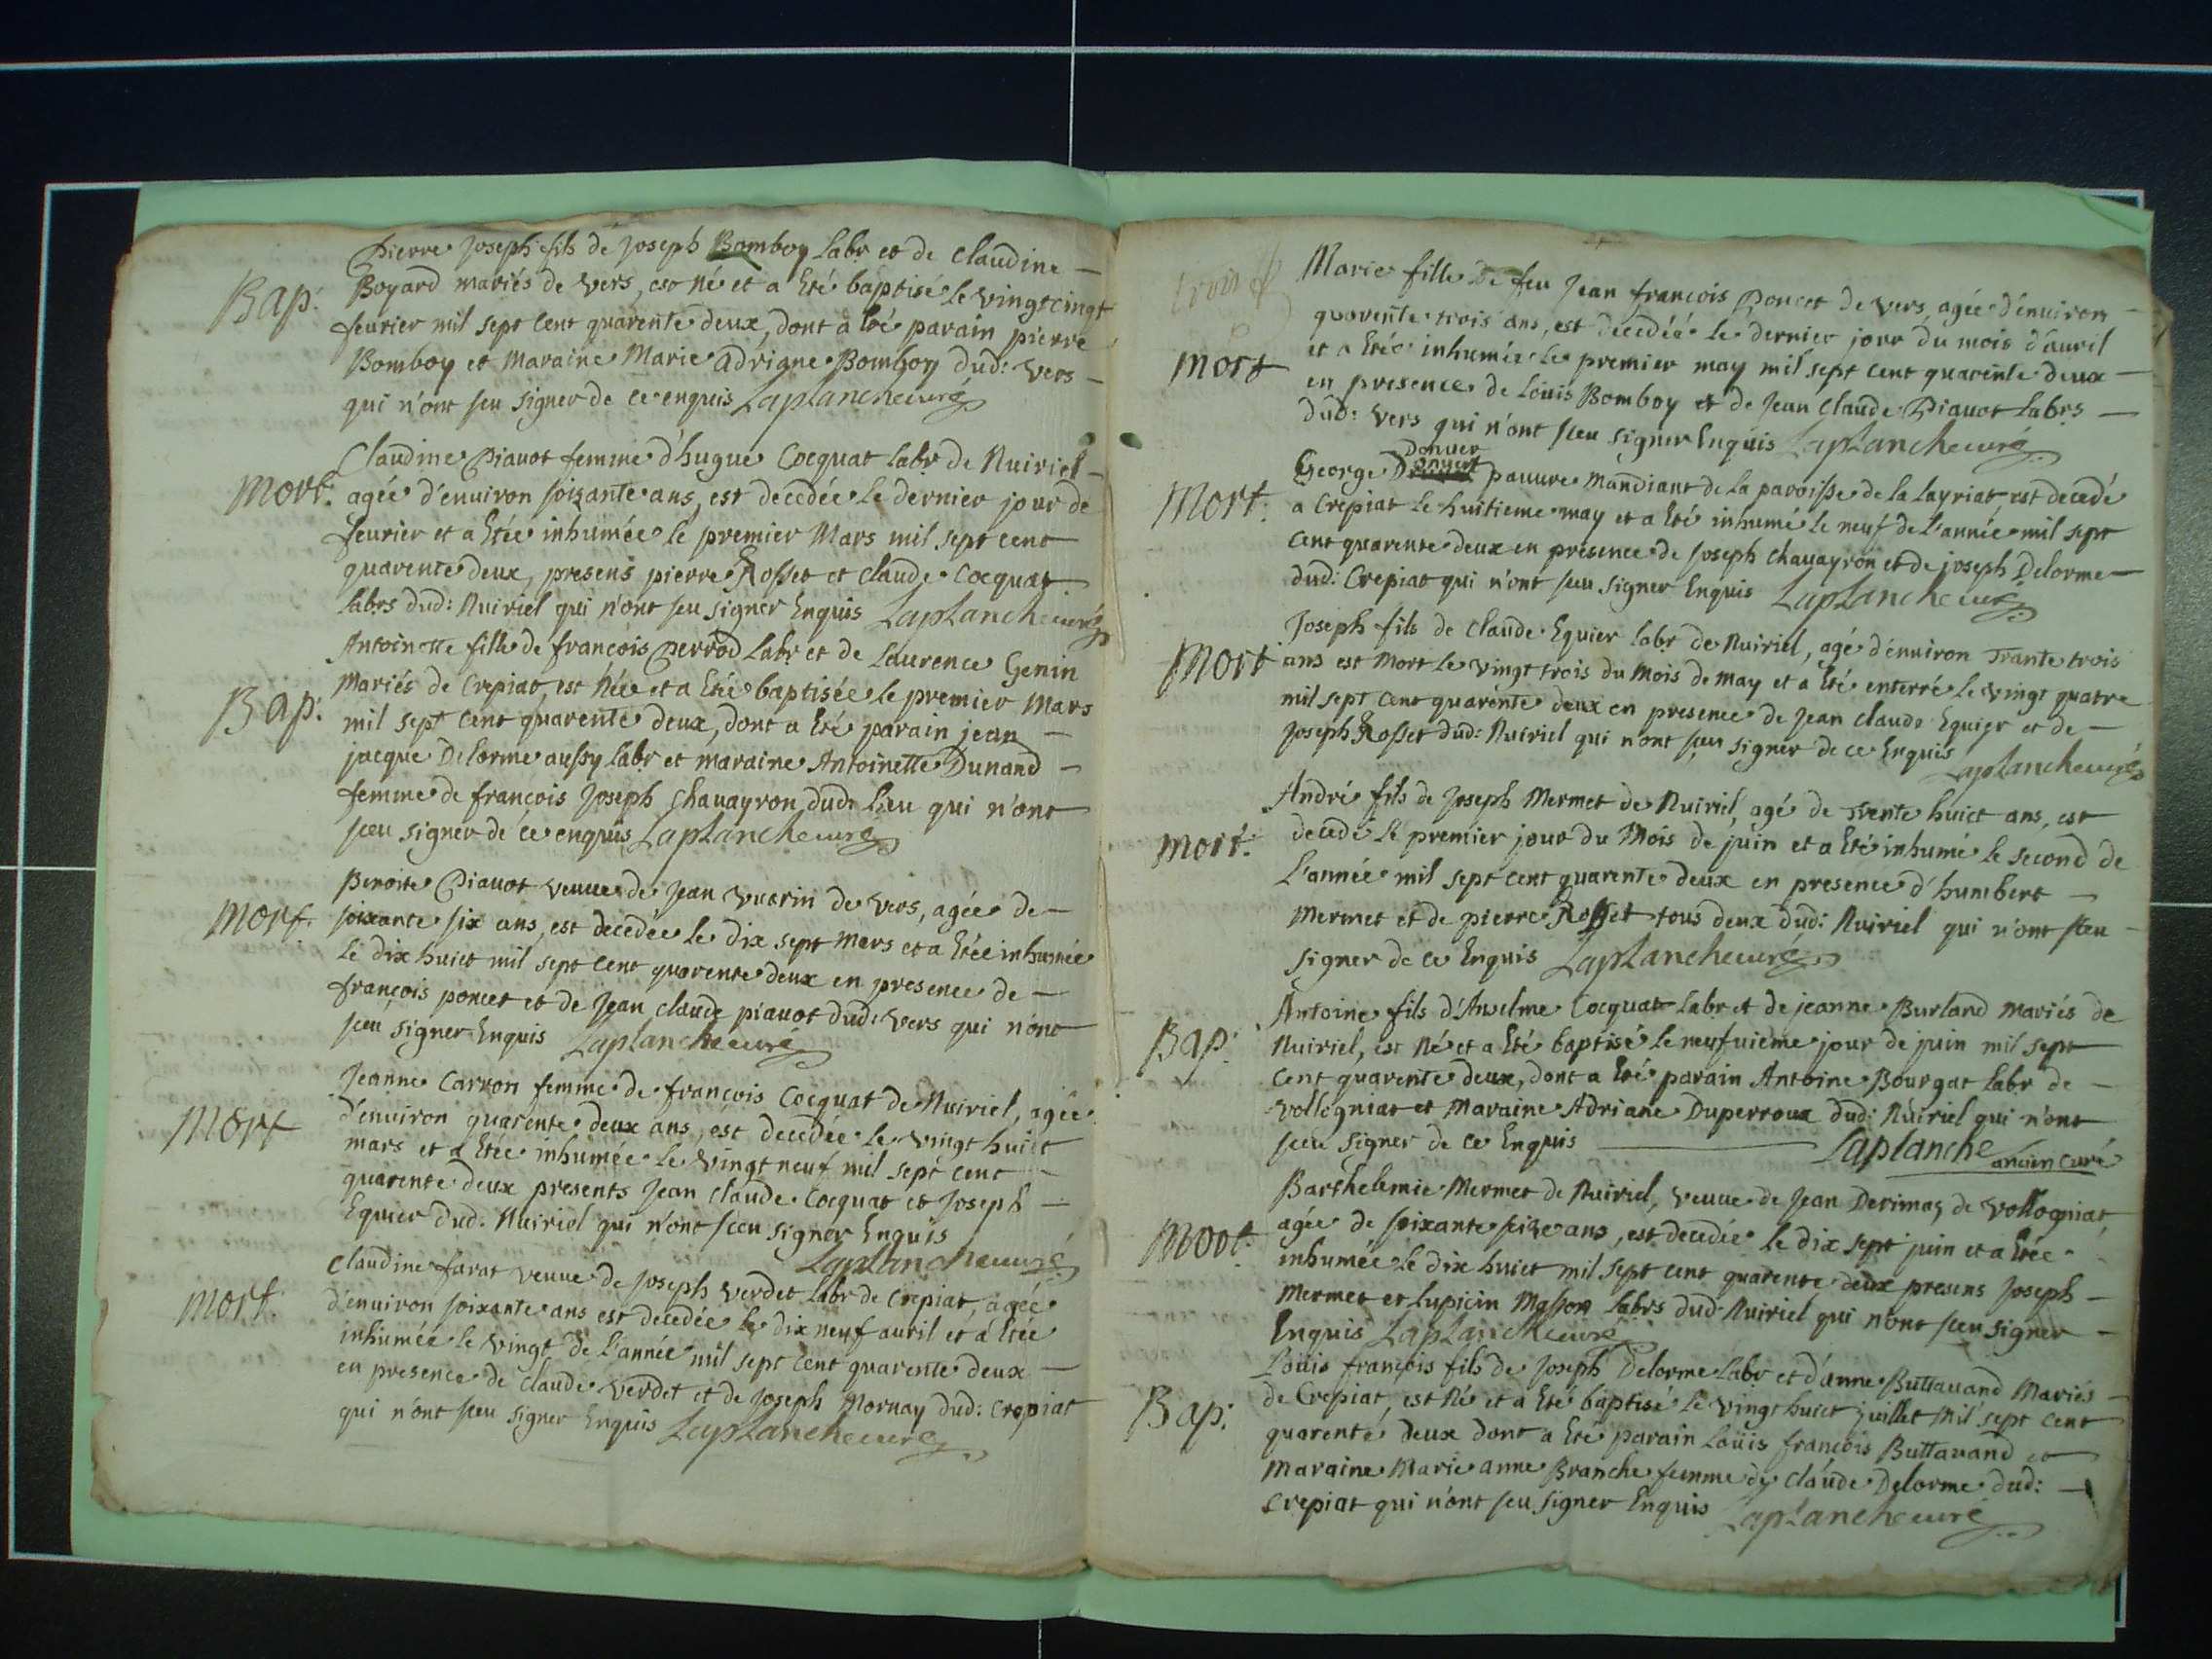 Pierre Joseph fils de Joseph Bomboy labr et de Claudine
Bap: Boyard mariés de Vers, est né et a Eté baptisé le vingtcinqt
feurier mil sept cent quarente deux, dont a Eté parain pierre
Bomboy et Maraine Marie adriane Bomboy dud: Vers
qui n'ont seu signer de ce enquis Laplanche curé
Claudine Piauot femme d'hugue Cocquat labr de Nuiriel
Mort. agée d'enuiron soixante ans, est decedée le dernier jour de
feurier et a Etée inhumée le premier Mars mil sept cent
quarente deux, presens pierre Rosset et Claude Cocquat
labrs dud: Nuiriel qui n'ont seu signer Enquis Laplanche curé
Antoinette fille de francois Perrod labr et de Laurence Genin
Bap: Mariés de Crepiat, est Née et a Eté baptisée le premier Mars
mil sept cent quarente deux, dont a Eté parain jean
jacque Delorme aussy labr et maraine Antoinette Dunand
femme de francois Joseph Chauayron dud: lieu qui n'ont
sceu signer de ce enquis Laplanche curé
Benoite Piauot veuue de Jean Vuarin de Vers, agée de
Mort. soixante six ans, est decedée le dix sept Mars et a Etée inhumée
le dix huict mil sept cent quarente deux en presence de
françois poncet et de Jean claude piauot dud: Vers qui n'ont
sceu signer Enquis Laplanche curé
Jeanne Carron femme de francois Cocquat de Nuiriel, agée
Mort d'enuiron quarente deux ans, est decedée le vingt huict
mars et a Etée inhumée le vingt neuf mil sept cent
quarente deux presents Jean Claude Cocquat et Joseph
Equier dud: Nuiriel qui n'ont sceu signer Enquis
Laplanche curé
Claudine farat veuue de Joseph Verdet labr de Crepiat, agée
Mort. d'enuiron soixante ans est decedée le dix neuf auril et a Etée
inhumée le vingt de l'année mil sept cent quarente deux
en presence de Claude Verdet et de Joseph Mornay dud: Crepiat
qui n'ont sceu signer Enquis Laplanche curé
Marie fille de feu Jean francois Poncet de Vers, agée d'enuiron
quarente trois ans, est decedéé le dernier jour du mois d'auril
Mort et a Etée inhumée le premier may mil sept cent quarente deux
en presence de Loüis Bomboy et de Jean Claude Piauot labrs
dud: Vers qui n'ont sceu signer Enquis Laplanche curé
Donuer
George pauure mandiant de la paroisse de la layriat est decedé
Mort: a Crepiat le huitieme may et a Eté inhumé le neuf de l'année mil sept
cent quarente deux en presence de Joseph Chauayron et de joseph Delorme
dud: Crepiat qui n'ont sceu signer Enquis Laplanche curé
Joseph fils de Claude Equier labr de Nuiriel, agé d'enuiron Trante trois
Mort ans est Mort le vingt trois du Mois de May et a Eté enterré le vingt quatre
mil sept cent quarente deux en presence de Jean claude Equier et de
Joseph Rosset dud: Nuiriel qui n'ont sceu signer de ce Enquis
Laplanche curé
André fils de Joseph Mermet de Nuiriel, agé de Trente huict ans, est
Mort: decedé le premier jour du Mois de juin et a Eté inhumé le second de
L'année mil sept cent quarente deux en presence d'humbert
Mermet et de pierre Rosset tous deux dud: Nuiriel qui n'ont sceu
signer de ce Enquis Laplanche curé
Antoine fils d'Anselme Cocquat labr et de jeanne Burland mariés de
Bap: Nuiriel, est Né et a Eté baptisé le neufuieme jour de juin mil sept
cent quarente deux, dont a Eté parain Antoine Bourgat labr de
vollogniat et Maraine Adriane Duperroux dud: Nuiriel qui n'ont
sceu signer de ce Enquis Laplanche ancien curé
Barthelemie Mermet de Nuiriel, veuue de Jean Derimaz de vollogniat,
Mort. agée de soixante seize ans, est decedée le dix sept juin et a Etée
inhumée le dix huict mil sept cent quarente deux presens Joseph
Mermet et Lupicin Masson labrs dud: Nuiriel qui n'ont sceu signer
Enquis Laplanche curé
Loüis francois fils de Joseph Delorme labr et d'anne Buttauand Mariés
Bap: de Crepiat, est Né et a Eté baptisé le vingt huict juillet mil sept cent
quarente deux dont a Eté parain Loüis francois Buttauand et
Maraine Marie anne Branche femme de Claude Delorme dud:
Crepiat qui n'ont seu signer Enquis Laplanche curé